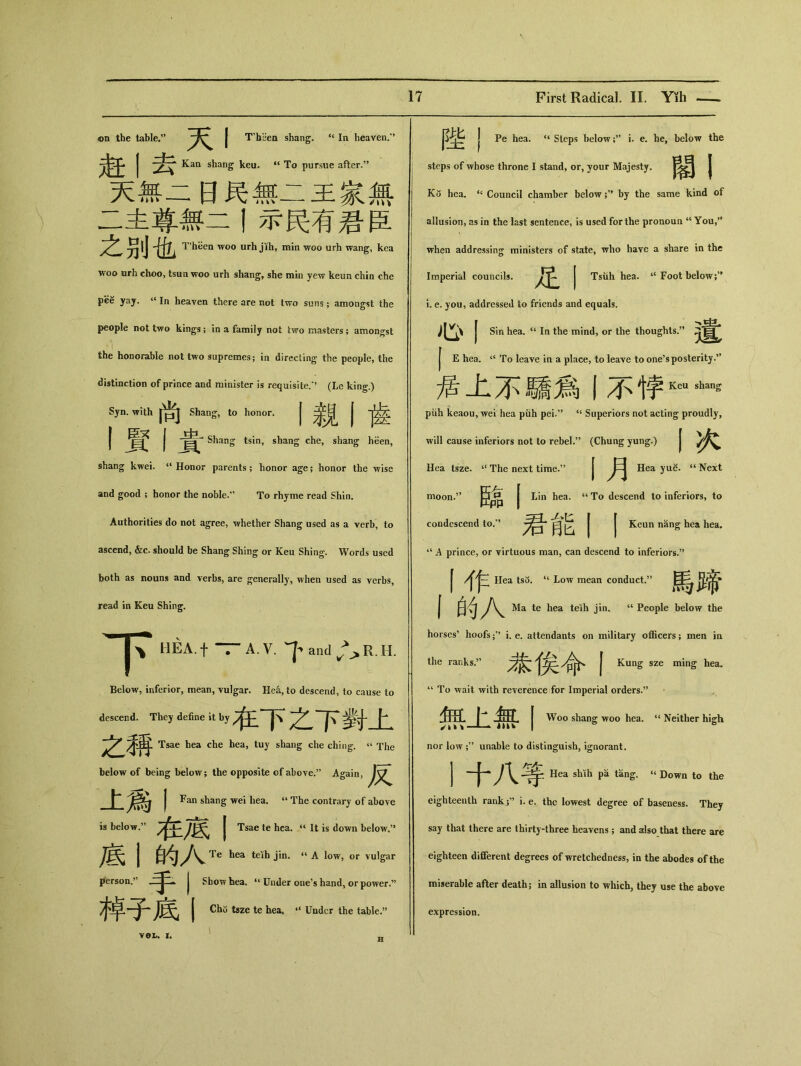 17 First Radical. II. Yĭh ——
on the table.” 天 | T’hëen shang. “ In heaven.”
赶 | 去 Kan shang keu. “ To pursue after.”
天無二日民無二王家無
二主尊無二 | 示民有君臣
之别也 T’hëen woo urh jĭh, min woo urh wang, kea
woo urh choo, tsun woo urh shang, she min yew keun chin che
pëĕ yay. “ In heaven there are not two suns ; amongst the
people not two kings ; in a family not two masters ; amongst
the honorable not two supremes ; in directing the people, the
distinction of prince and minister is requisite.” (Le king.)
Syn. with 尚 Shang, to honor. | 親 | 齒
| 賢 | 貴 Shang tsin, shang che, shang hëen,
shang kwei. “ Honor parents ; honor age ; honor the wise
and good ; honor the noble.” To rhyme read Shin.
Authorities do not agree, whether Shang used as a verb, to
ascend, &c. should be Shang Shing or Keu Shing. Words used
both as nouns and verbs, are generally, when used as verbs,
read in Keu Shing.
下 HEÀ. † A. V. and R. H.
Below, inferior, mean, vulgar. Heá, to descend, to cause to
descend. They define it by 在下之下對上
之稱 Tsae hea che hea, tuy shang che ching. “ The
below of being below ; the opposite of above.” Again, 反
上爲 | Fan shang wei hea. “ The contrary of above
is below.” 在底 | Tsae te hea. “ It is down below.”
底 | 的人 Te hea teĭh jin. “ A low, or vulgar
person.” 手 | Show hea. “ Under one’s hand, or power.”
棹子底 | Chŏ tsze te hea, “ Under the table.”
VOL. I. H
陛 | Pe hea. “ Steps below ;” i. e. he, below the
steps of whose throne I stand, or, your Majesty. 閣 |
Kŏ hea. “ Council chamber below ;” by the same kind of
allusion, as in the last sentence, is used for the pronoun “ You,”
when addressing ministers of state, who have a share in the
Imperial councils. 足 | Tsŭh hea. “ Foot below ;”
i. e. you, addressed to friends and equals.
心 | Sin hea. “ In the mind, or the thoughts.” 遺
| E hea. “ To leave in a place, to leave to one’s posterity.”
居上不驕爲 | 不悖 Keu shang
pŭh keaou, wei hea pŭh pei.” “ Superiors not acting proudly,
will cause inferiors not to rebel.” (Chung yung.) | 次
Hea tsze. “ The next time.” | 月 Hea yuĕ. “ Next
moon.” 臨 | Lin hea. “ To descend to inferiors, to
condescend to.” 君能 | | Keun năng hea hea.
“ A prince, or virtuous man, can descend to inferiors.”
| 作 Hea tsŏ. “ Low mean conduct.” 馬蹄
| 的人 Ma te hea teĭh jin. “ People below the
horses’ hoofs ;” i. e. attendants on military officers ; men in
the ranks.” 恭俟命 | Kung sze ming hea.
“ To wait with reverence for Imperial orders.”
無上無 | Woo shang woo hea. “ Neither high
nor low ;” unable to distinguish, ignorant.
| 十八等 Hea shĭh pă tăng. “ Down to the
eighteenth rank ;” i. e. the lowest degree of baseness. They
say that there are thirty-three heavens ; and also that there are
eighteen different degrees of wretchedness, in the abodes of the
miserable after death ; in allusion to which, they use the above
expression.